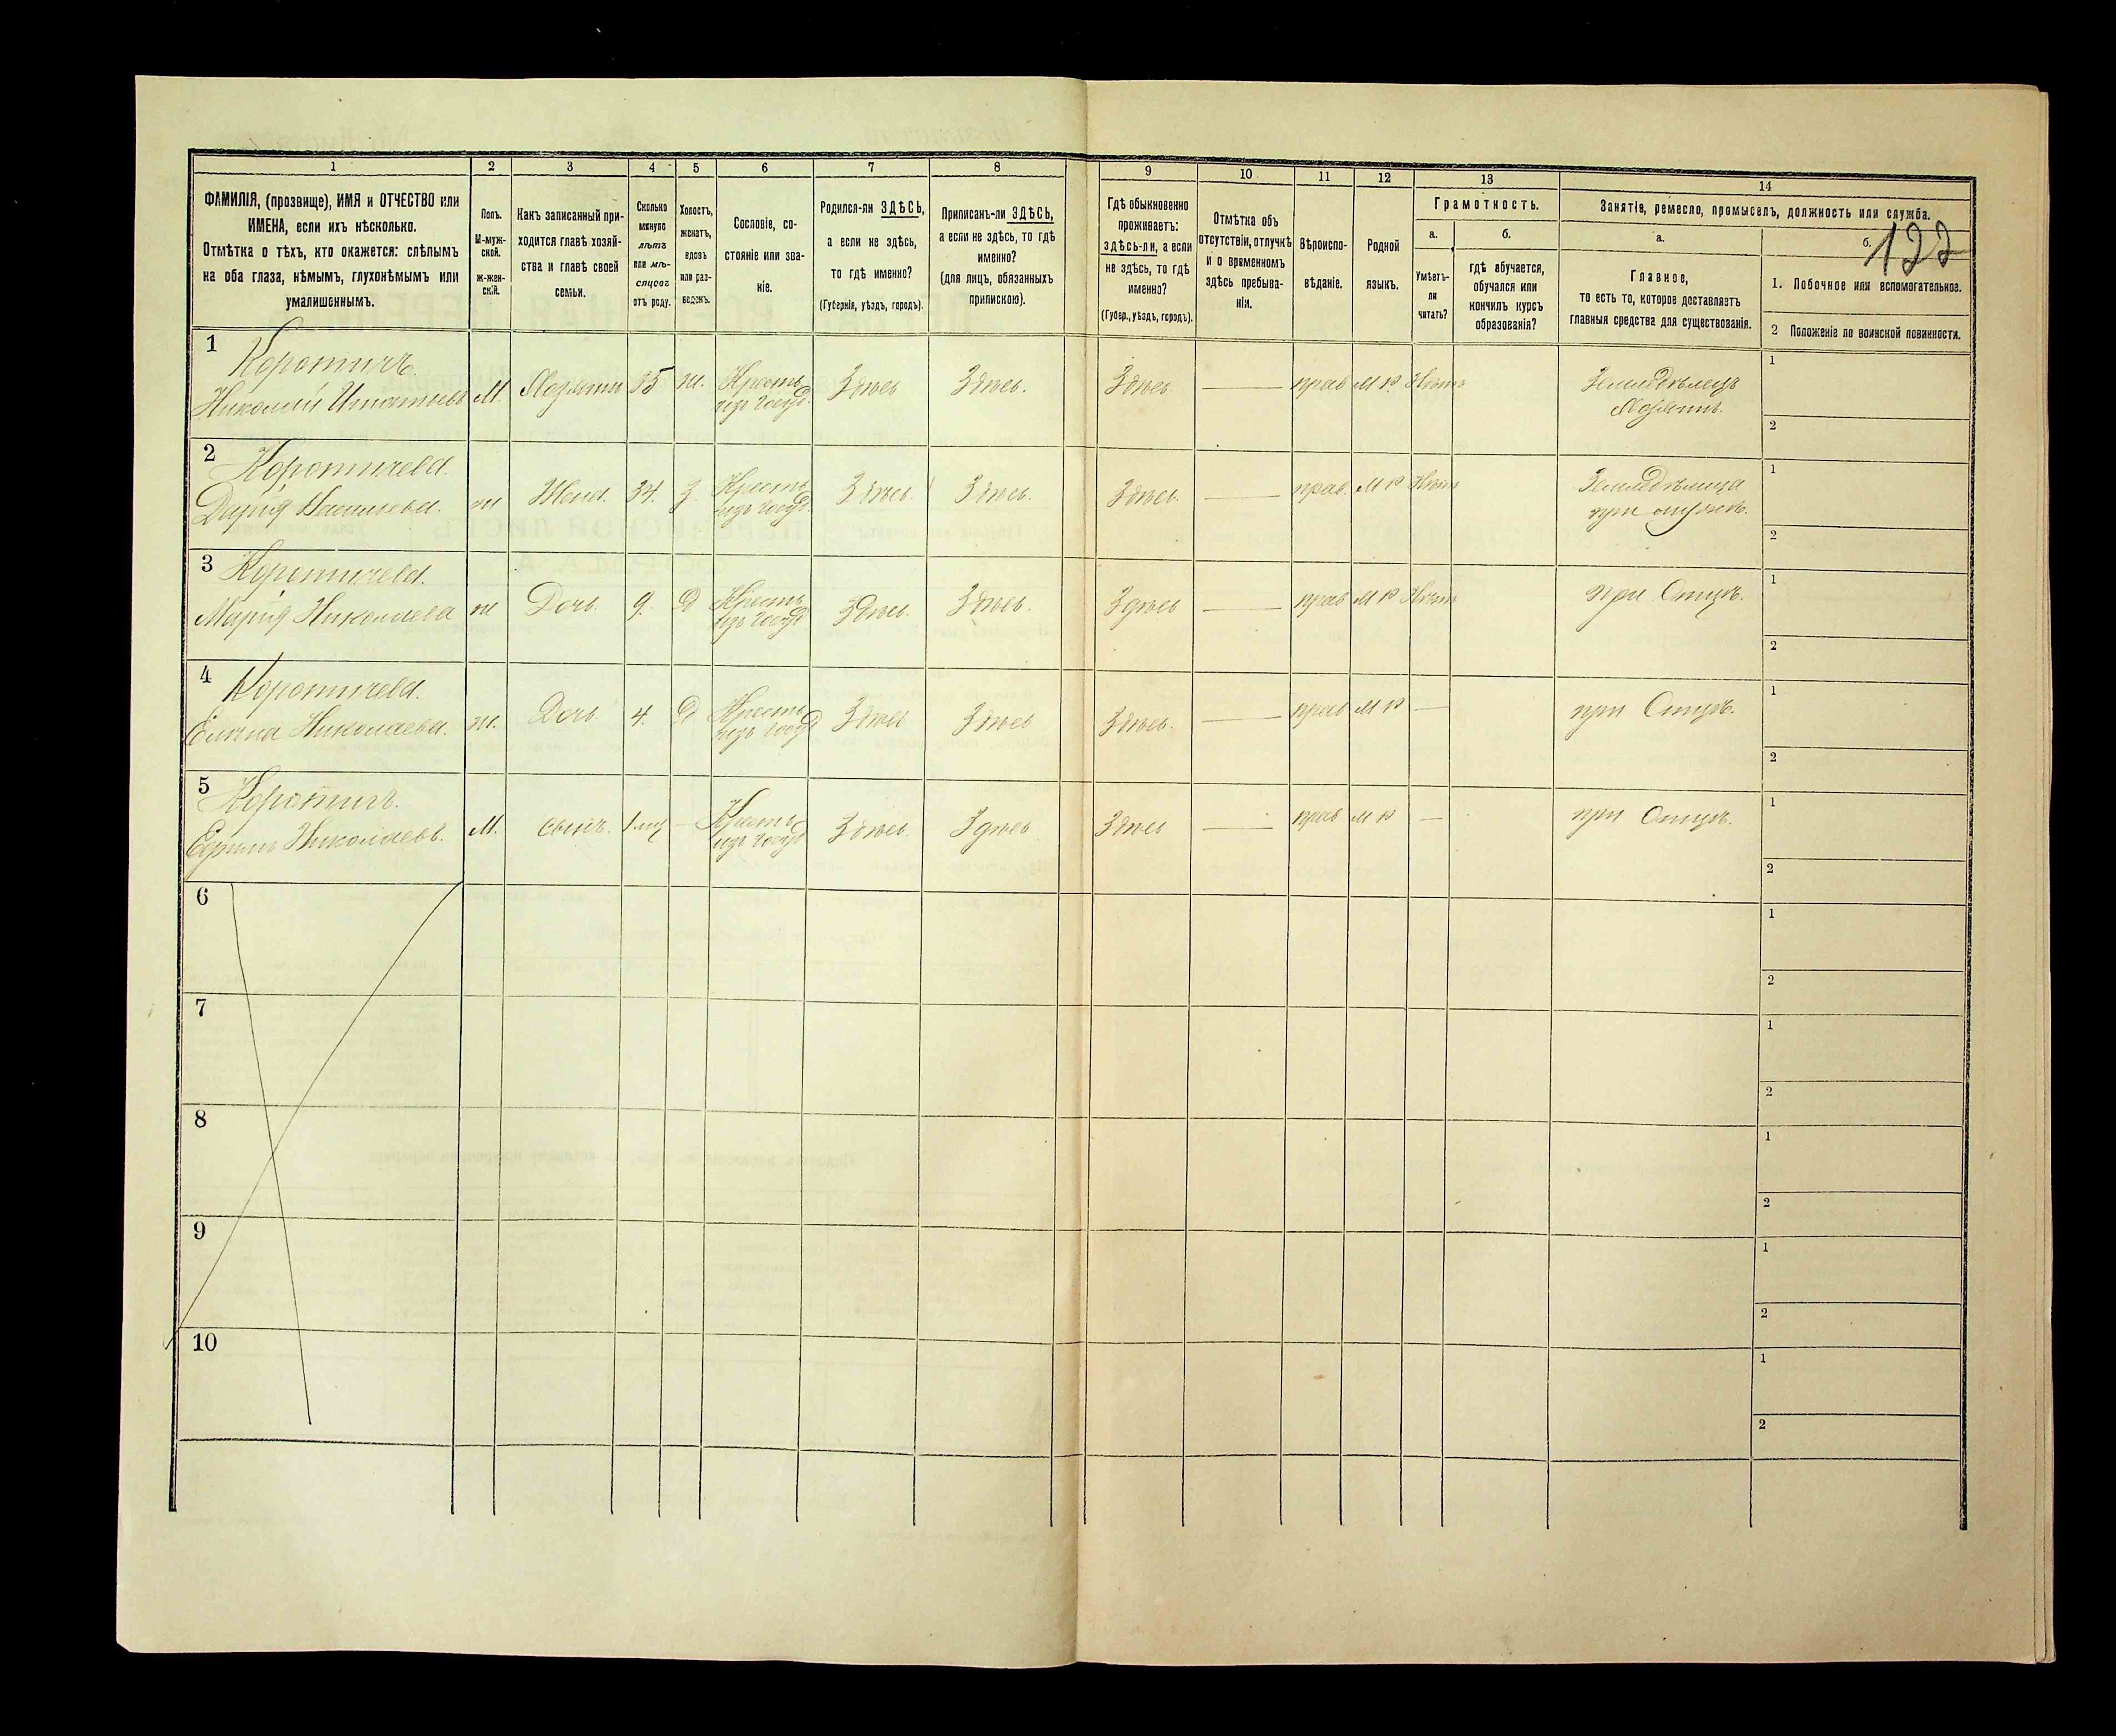 1
2
3
4
5
6
7
8
ФАМИЛІЯ, (прозвище), ИМЯ и ОТЧЕСТВО или
ИМЕНА, если ихъ нѣсколько.
Отмѣтка о тѣхъ, кто окажется: слѣпымъ
на оба глаза, нѣмымъ, глухонѣмымъ или
умалишеннымъ.
Полъ.
М-муж-
ской.
ж-жен-
скій.
Какъ записанный при-
ходится главѣ хозяй-
ства и главѣ своей
семьи.
Сколько
минуло
лѣтъ
или мѣ-
сяцевъ
отъ роду.
Холостъ,
женатъ,
вдовъ
или раз-
веденъ.
Сословіе, со-
стояніе или зва-
ніе.
Родился-ли ЗДѢСЬ,
а если не здѣсь,
то гдѣ именно?
(Губернія, уѣздъ, городъ).
Приписанъ-ли ЗДѢСЬ,
а если не здѣсь, то гдѣ
именно?
(для лицъ, обязанныхъ
припискою).
9
10
11
12
13
14
Гдѣ обыкновенно
проживаетъ:
здѣсь-ли, а если
не здѣсь, то гдѣ
именно?
(Губер., уѣздъ, городъ).
Отмѣтка объ
отсутствіи, отлучкѣ
и о временномъ
здѣсь пребыва-
ніи.
Вѣроиспо-
вѣданіе.
Родной
языкъ.
Грамотность.
а.
б.
Умѣетъ-
ли
читать?
гдѣ обучается,
обучался или
кончилъ курсъ
образованія?
Занятіе, ремесло, промыселъ, должность или служба.
а.
б.
Главное,
то есть то, которое доставляетъ
главныя средства для существованія.
1. Побочное или вспомогательное.
2 Положеніе по воинской повинности.
1
Коротичъ.
Николай Игнатьевъ М. Хозяинъ 35 ж. Крестьян. изъ госуд. Здѣсь Здѣсь. Здѣсь. — прав м р Нѣтъ Земледѣлецъ
Хозяинъ.
1
2
2
Коротичева
Дарія Васильева. ж Жена. 34. З. Крестьян. изъ госуд. Здѣсь. Здѣсь. Здѣсь. — прав. м р Нѣтъ Земледѣлица
при мужѣ.
1
2
3
Коротичева.
Марія Николаева ж Дочь. 9. Д Крестьян. изъ госуд Здѣсь. Здѣсь. Здѣсь — прав м р Нѣтъ при Отцѣ.
1
2
4
Коротичева.
Елена Николаева. ж. Дочь. 4. Д Крестьян. изъ госуд Здѣсь Здѣсь Здѣсь. — прав м р — при Отцѣ.
1
2
5
Коротичъ.
Николаевъ. М. сынъ. 1 мц — Крестьян. изъ госуд Здѣсь. Здѣсь Здѣсь — прав м р — при Отцѣ.
1
2
6
1
2
7
1
2
8
1
2
9
1
2
10
1
2